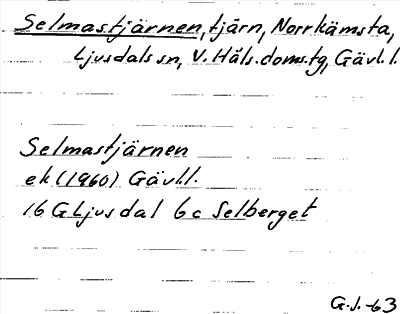 Selmastjärnen, tjärn, Norrkämsta,
Ljusdals sn, V. Häls. doms.tg, Gävl. l.
Selmastjärnen
ek (1960) Gävll.
16 G Ljusdal 6c Selberget
G.J. -63